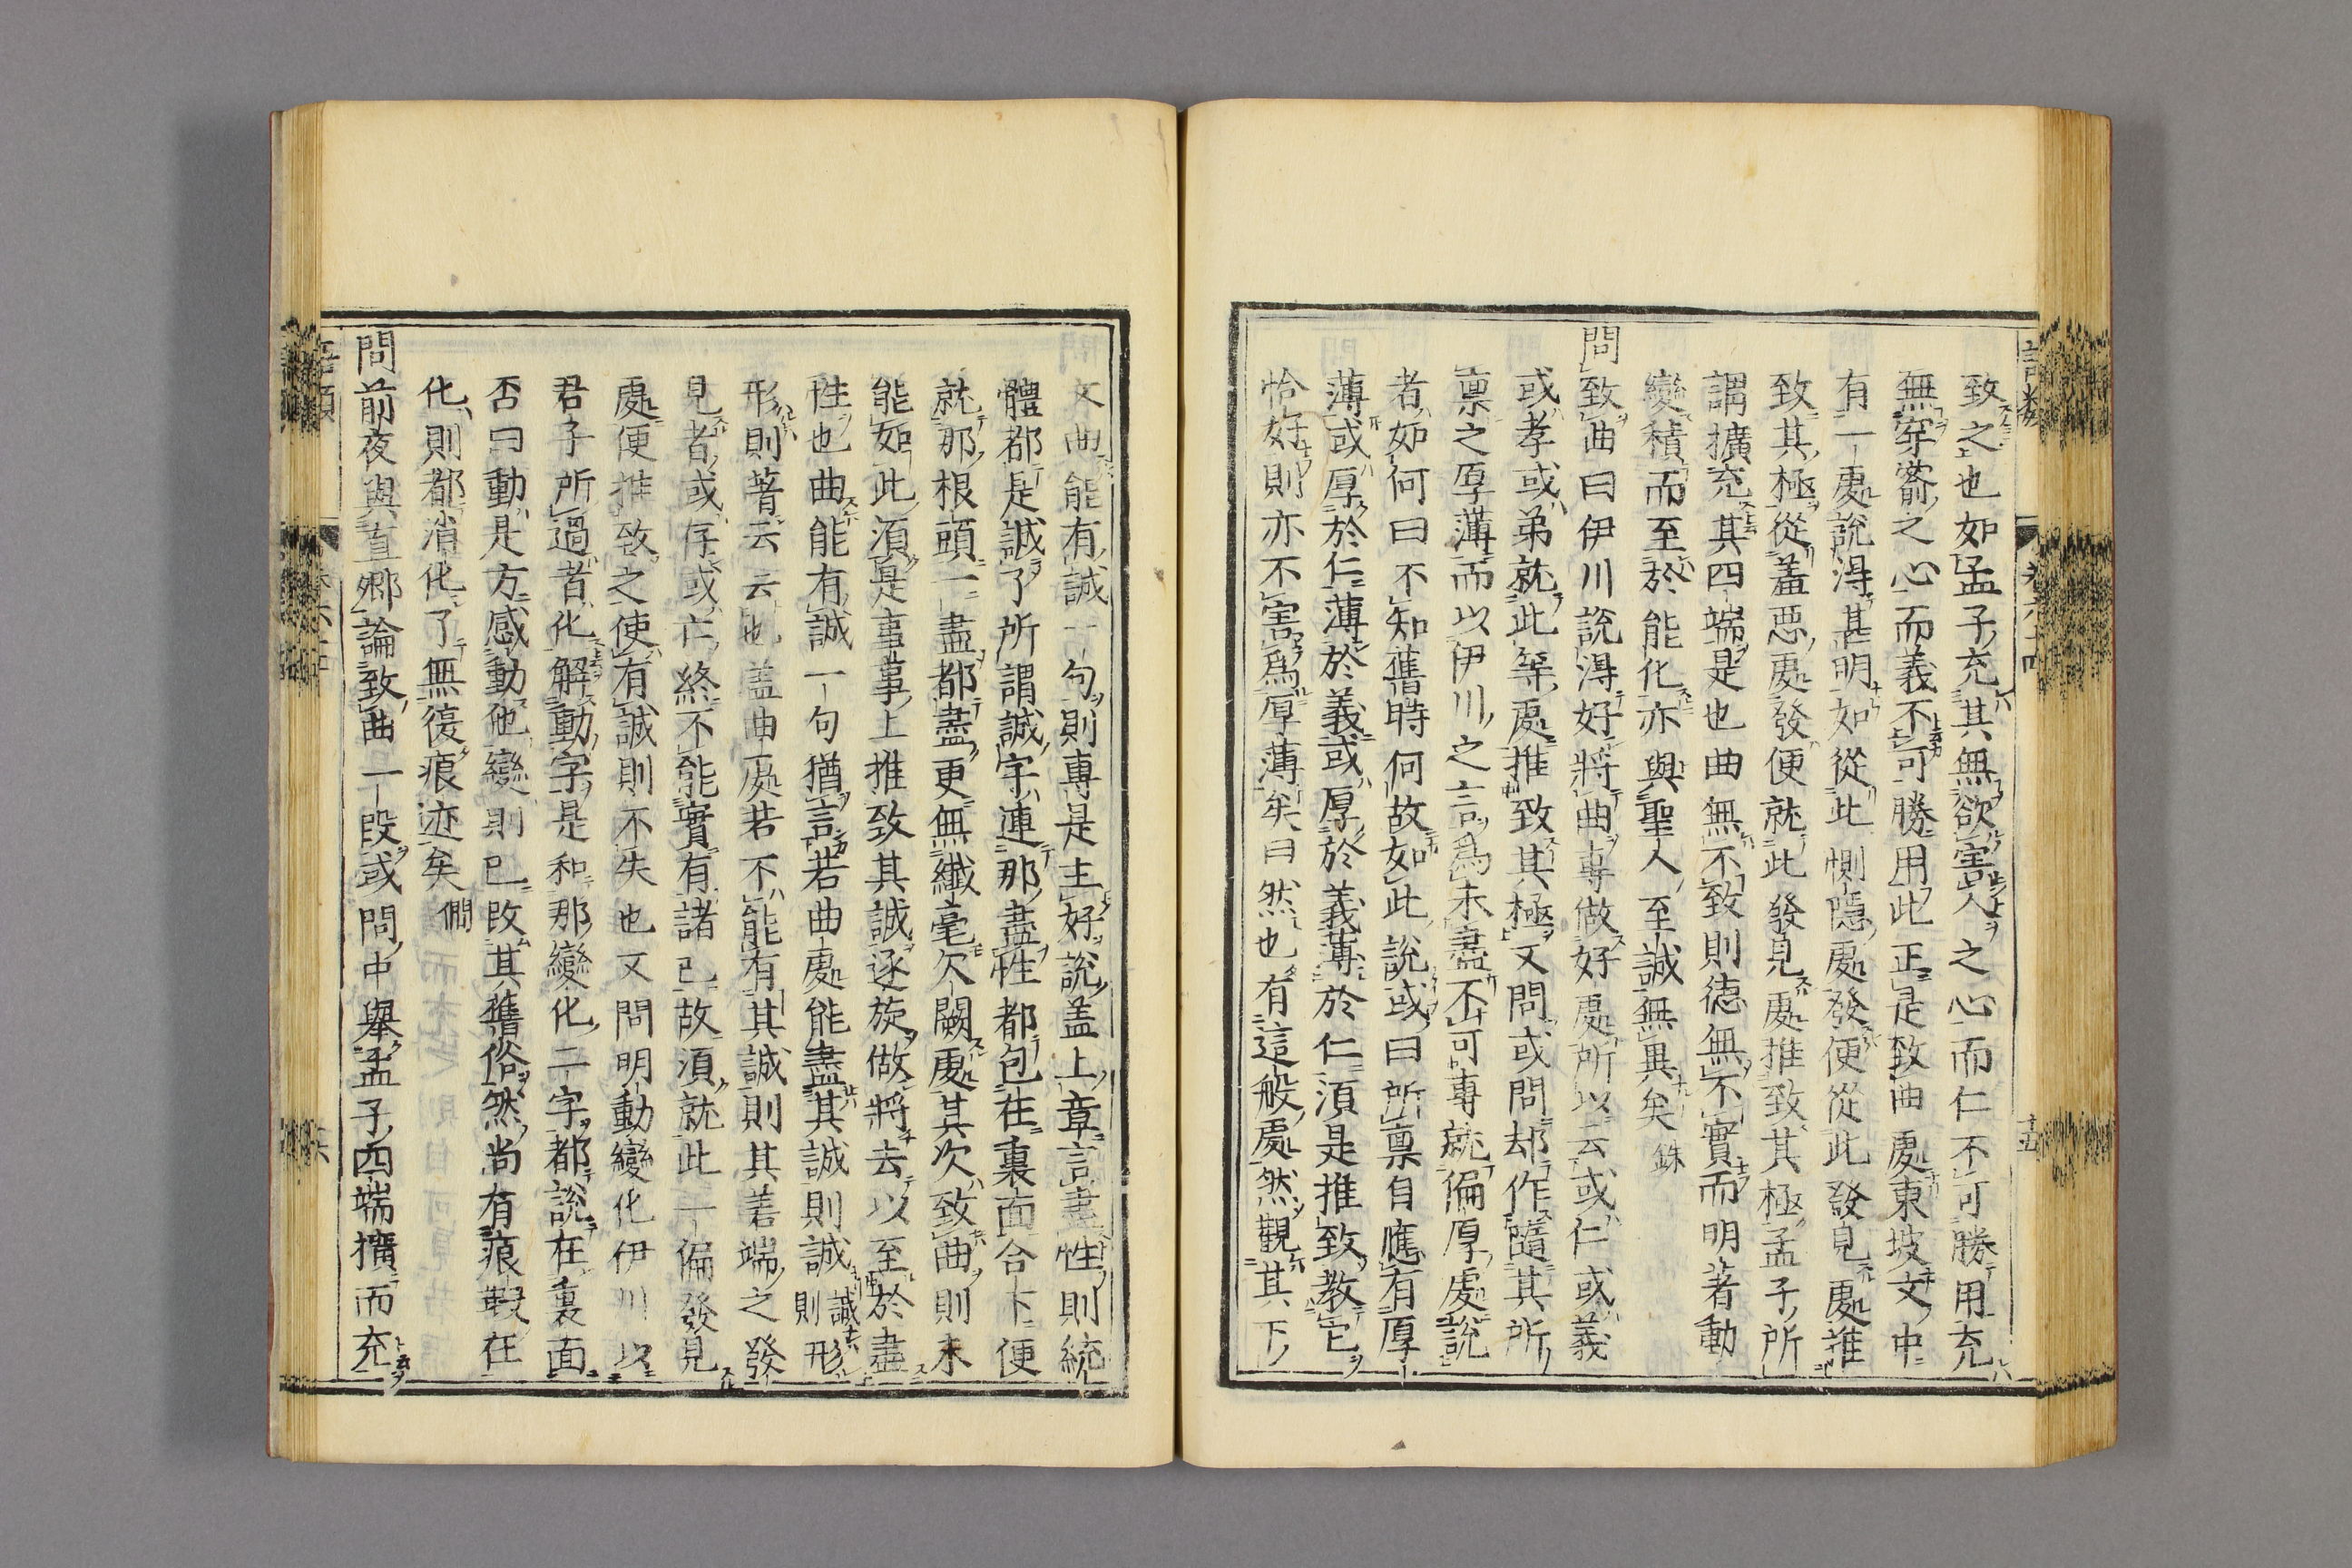 致之也如孟子充其無欲害人之心而仁不可勝用充
無穿窬之心而義不可勝用此正是致曲處東坡文中
有一處說得甚明如從此惻隱處發便從此發見處推
致其極從羞惡處發便就此發見處推致其極孟子所
謂擴充其四端是也曲無不致則德無不實而明著動
變積而至於能化亦與聖人至誠無異矣 銖
問致曲曰伊川說得好將曲專做好處所以云或仁或義
或孝或弟就此等處推致其極又問或問却作隨其所
禀之厚薄而以伊川之言為未盡不可專就偏厚處說
者如何曰不知舊時何故如此說或曰所禀自應有厚
薄或厚於仁薄於義或厚於義薄於仁須是推致教它
恰好則亦不害為厚薄矣曰然也有這般處然觀其下
文曲能有誠一句則專是主好說盖上章言盡性則統
體都是誠了所謂誠字連那盡性都包在裏面合下便
就那根頭一盡都盡更無纖毫欠闕處其次致曲則未
能如此須是事事上推致其誠逐旋做將去以至於盡
性也曲能有誠一句猶言若曲處能盡其誠則誠 誠則形
形則著云云也盖曲處若不能有其誠則其善端之發
見者或存或亡終不能實有諸已故須就此一偏發見
處便推致之使有誠則不失也又問明動變化伊川以
君子所過者化解動字是和那變化二字都說在裏面
否曰動是方感動他變則已改其舊俗然尚有痕瑕在
化則都消化了無復痕迹矣 僩
問前夜與直卿論致曲一段或問中舉孟子四端擴而充